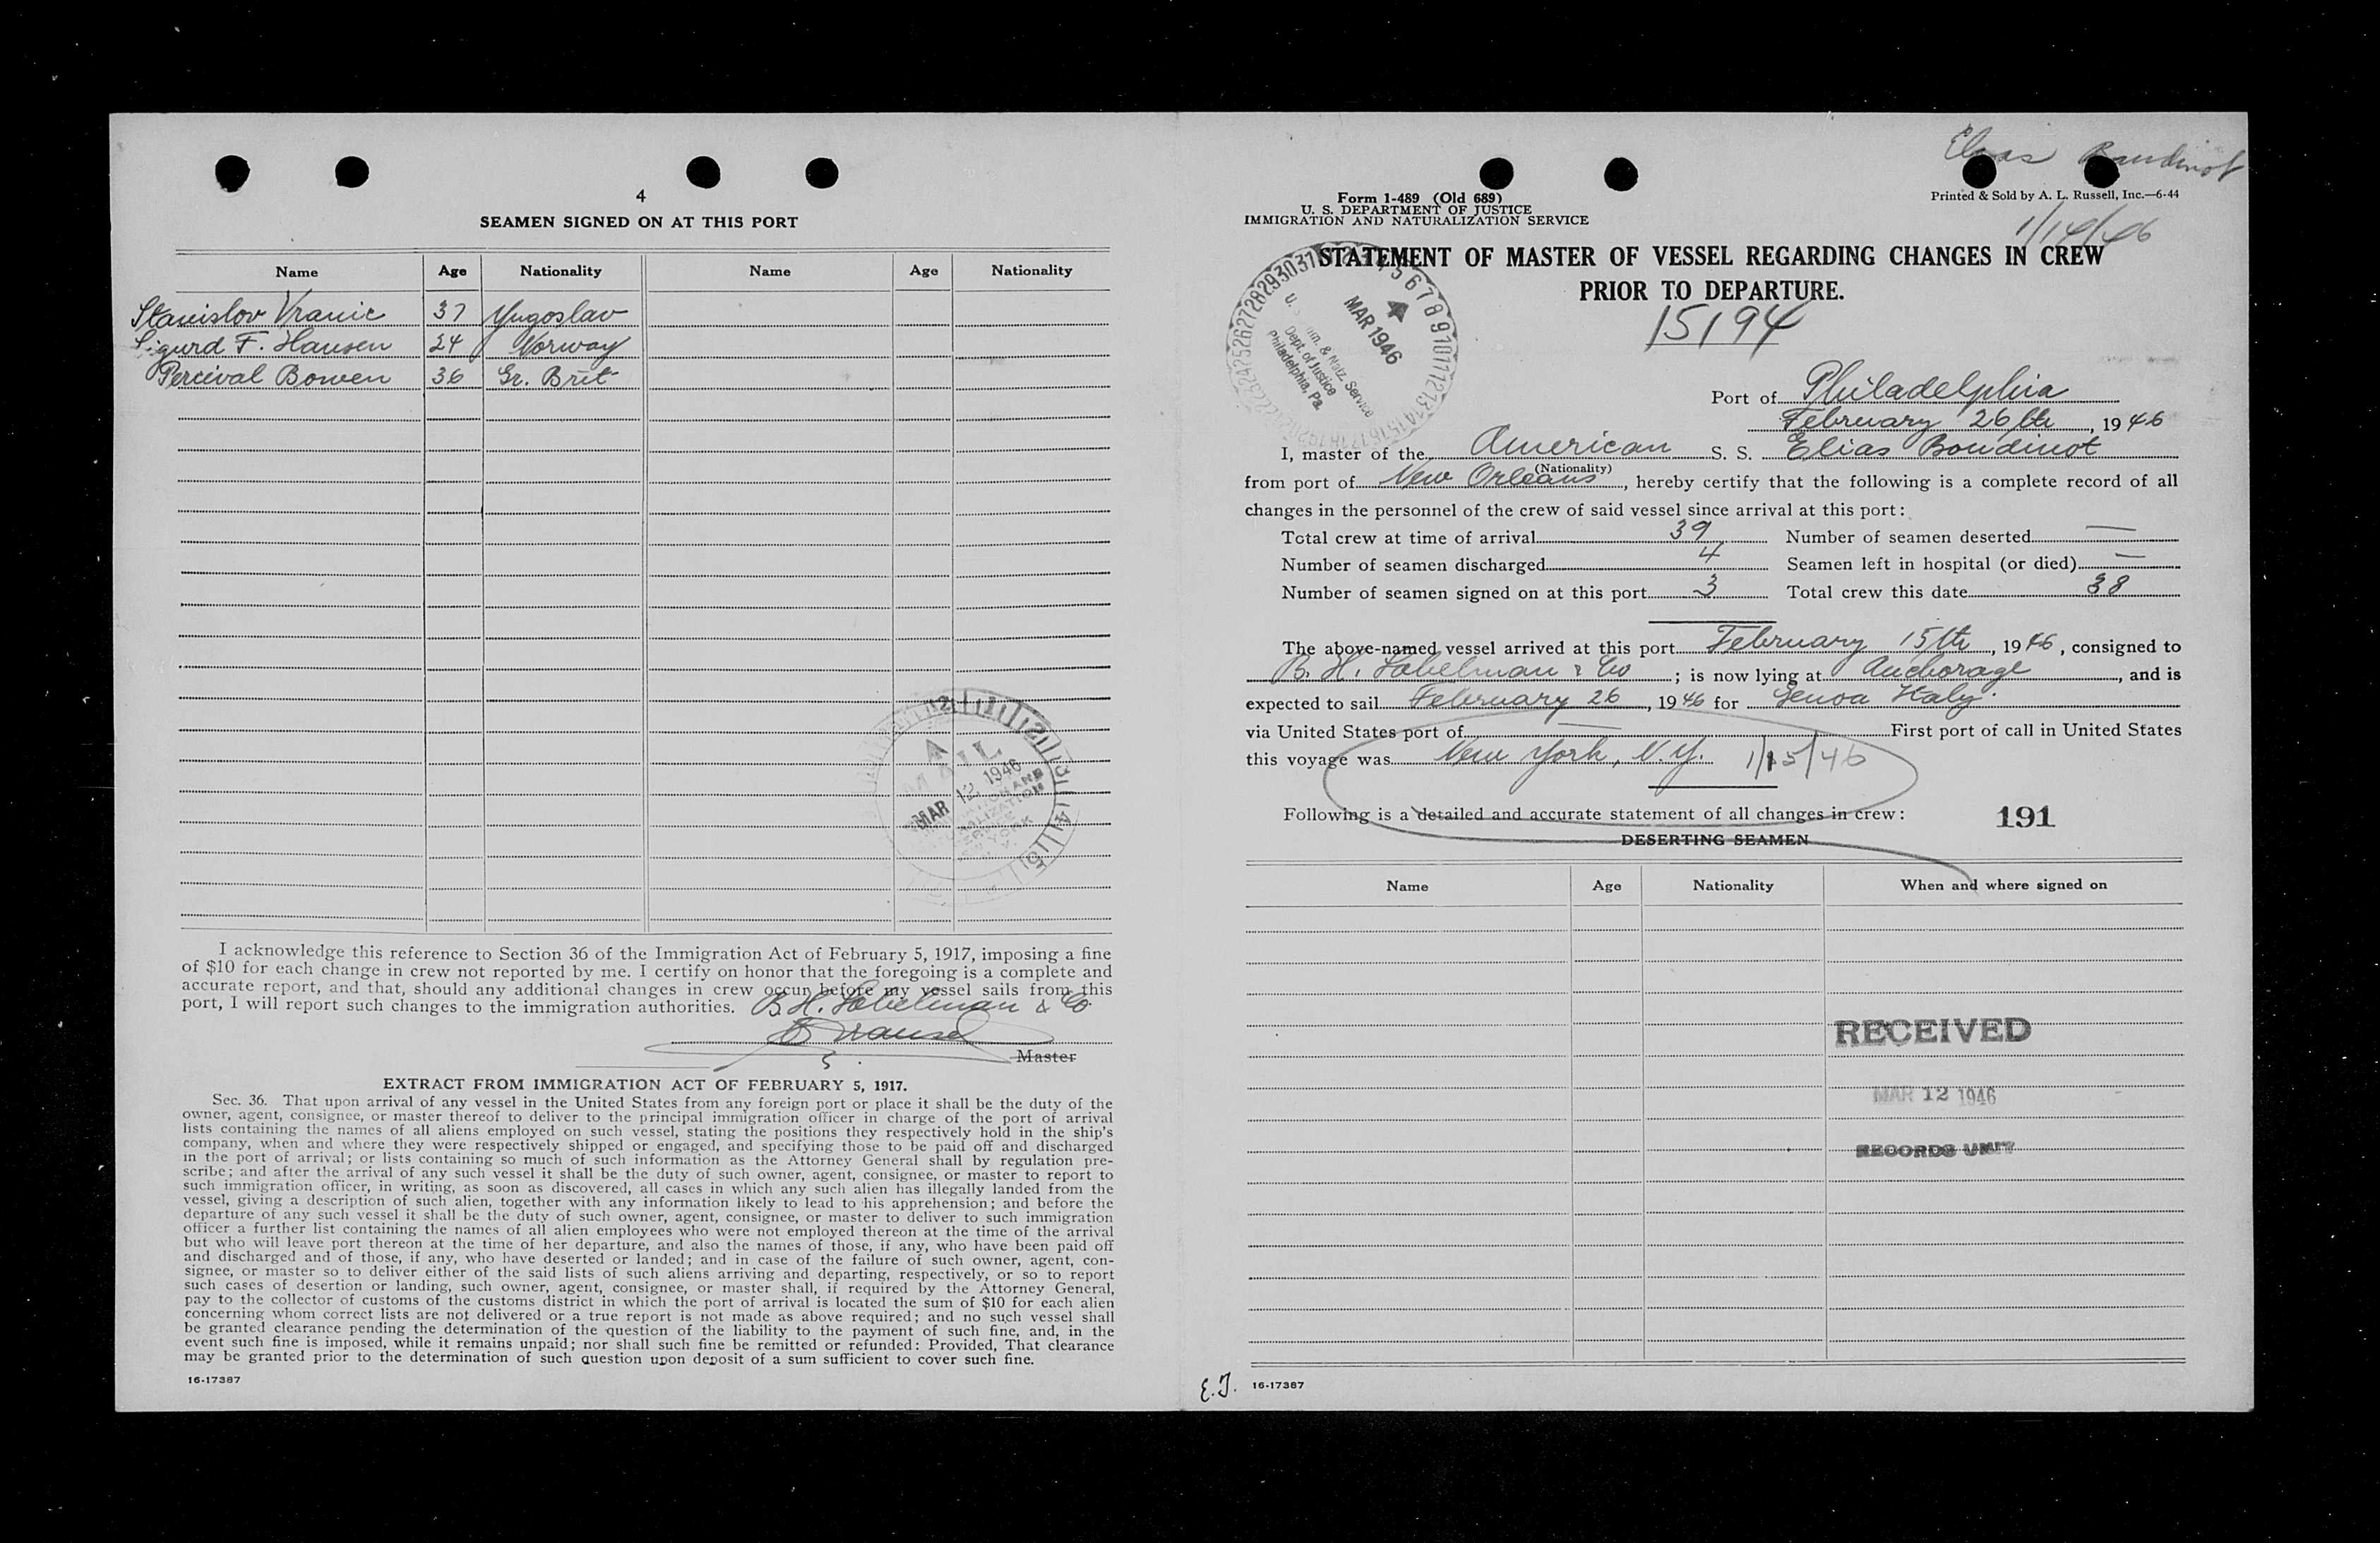 4
SEAMEN SIGNED ON AT THIS PORT
Name Age Nationality Name Age Nationality
Stanislov Vranic 37 Yugoslav
Sigurd F. Hansen 24 Norway
Percival Bowen 36 Gr. Brit
A
MAIL
MAR 12 1946
I acknowledge this reference to Section 36 of the Immigration Act of February 5, 1917, imposing a fine
of $10 for each change in crew not reported by me. I certify on honor that the foregoing is a complete and
accurate report, and that, should any additional changes in crew occur before my vessel sails from this
port, I will report such changes to the immigration authorities. B. H. Sobelman & Co
Master
EXTRACT FROM IMMIGRATION ACT OF FEBRUARY 5, 1917.
Sec. 36. That upon arrival of any vessel in the United States from any foreign port or place it shall be the duty of the
owner, agent, consignee, or master thereof to deliver to the principal immigration officer in charge of the port of arrival
lists containing the names of all aliens employed on such vessel, stating the positions they respectively hold in the ship's
company, when and where they were respectively shipped or engaged, and specifying those to be paid off and discharged
in the port of arrival; or lists containing so much of such information as the Attorney General shall by regulation pre-
scribe; and after the arrival of any such vessel it shall be the duty of such owner, agent, consignee, or master to report to
such immigration officer, in writing, as soon as discovered, all cases in which any such alien has illegally landed from the
vessel, giving a description of such alien, together with any information likely to lead to his apprehension; and before the
departure of any such vessel it shall be the duty of such owner, agent, consignee, or master to deliver to such immigration
officer a further list containing the names of all alien employees who were not employed thereon at the time of the arrival
but who will leave port thereon at the time of her departure, and also the names of those, if any, who have been paid off
and discharged and of those, if any, who have deserted or landed; and in case of the failure of such owner, agent, con-
signee, or master so to deliver either of the said lists of such aliens arriving and departing, respectively, or so to report
such cases of desertion or landing, such owner, agent, consignee, or master shall, if required by the Attorney General,
pay to the collector of customs of the customs district in which the port of arrival is located the sum of $10 for each alien
concerning whom correct lists are not delivered or a true report is not made as above required; and no such vessel shall
be granted clearance pending the determination of the question of the liability to the payment of such fine, and, in the
event such fine is imposed, while it remains unpaid; nor shall such fine be remitted or refunded: Provided, That clearance
may be granted prior to the determination of such question upon deposit of a sum sufficient to cover such fine.
16-17387
Elias Boudinot
Form 1-489 (Old 689)
U. S. DEPARTMENT OF JUSTICE
IMMIGRATION AND NATURALIZATION SERVICE
Printed & Sold by A. L. Russell, Inc.—6-44
1/14/46
STATEMENT OF MASTER OF VESSEL REGARDING CHANGES IN CREW
PRIOR TO DEPARTURE.
15194
4
MAR 1946
U. S. Imm. & Natz. Service
Dept. of Justice
Philadelphia, Pa.
Port of Philadelphia
February 26th, 1946
I, master of the American S. S. Elias Boudinot
(Nationality)
from port of New Orleans, hereby certify that the following is a complete record of all
changes in the personnel of the crew of said vessel since arrival at this port:
Total crew at time of arrival 39 Number of seamen deserted —
Number of seamen discharged 4 Seamen left in hospital (or died) —
Number of seamen signed on at this port 3 Total crew this date 38
The above-named vessel arrived at this port February 15th, 1946, consigned to
B. H. Sobelman & Co; is now lying at Anchorage, and is
expected to sail February 26, 1946 for Genoa Italy.
via United States port of — First port of call in United States
this voyage was New York, N.Y. 1/15/46
Following is a detailed and accurate statement of all changes in crew:
191
DESERTING SEAMEN
Name Age Nationality When and where signed on
RECEIVED
MAR 12 1946
RECORDS UNIT
E.J. 16-17387